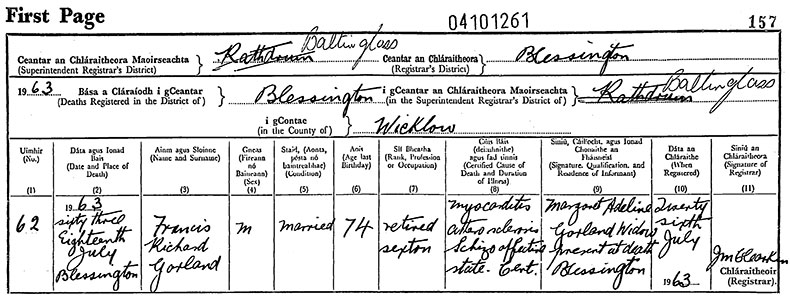 First Page 04101261 157
Baltinglass
Ceantar an Chláraitheora Maoirseachta Rathdrum Ceantar an Chláraitheora Blessington
(Superintendent Registrar's District) (Registrar's District)
Baltinglass
1963 Bása a Cláraíodh i gCeantar Blessington i gCeantar an Chláraitheora Maoirseachta Rathdrum
(Deaths Registered in the District of) (in the Superintendent Registrar's District of)
i gContae Wicklow
(in the County of)
Uimhir
(No.)
(1)
Dáta agus Ionad
Báis
(Date and Place of
Death)
(2)
Ainm agus Sloinne
(Name and Surname)
(3)
Gnéas
(Fireann
nó
Baineann)
(Sex)
(4)
Staid, (Aonta,
pósta nó
baintreabhac)
(Condition)
(5)
Aois
(Age last
Birthday)
(6)
Slí Bheatha
(Rank, Profession
or Occupation)
(7)
Cúis Báis
(deimhnithe)
agus fad tinnis
(Certified Cause of
Death and Duration
of Illness)
(8)
Síniú, Cáilíocht, agus Ionad
Chónaithe an
Fháisnéisí
(Signature, Qualification, and
Residence of Informant)
(9)
Dáta an
Chláraithe
(When
Registered)
(10)
Síniú an
Chláraitheora
(Signature of
Registrar)
(11)
62
1963
sixty three
Eighteenth
July
Blessington
Francis
Richard
Gorland
M
married
74
retired
sexton
myocarditis
arterosclerosis
Schizo affective
state. Cert.
Margaret Adeline
Gorland Widow
present at death
Blessington
Twenty
sixth
July
1963
Cláraitheoir
(Registrar).